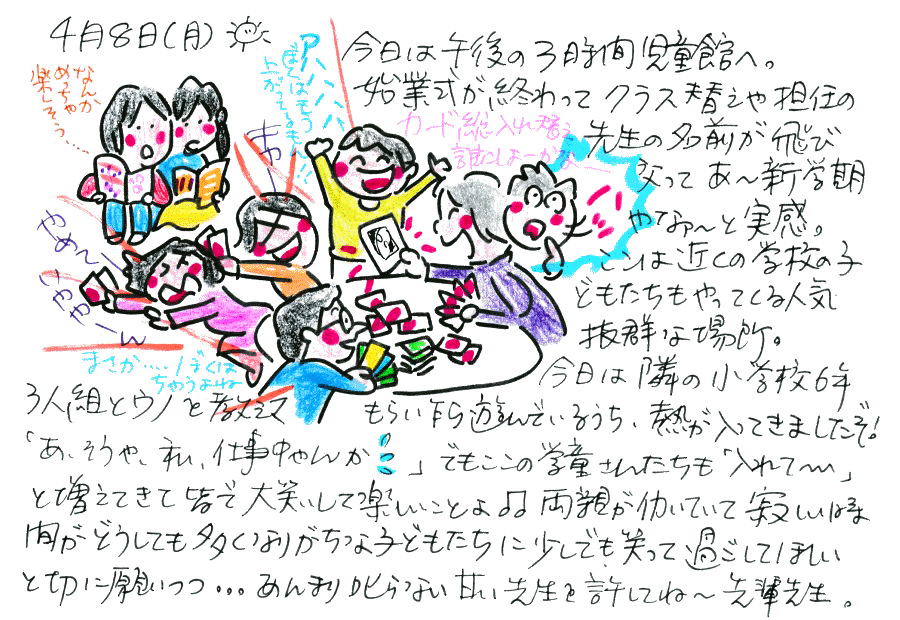 4月8日(月)
今日は午後の3時間児童館へ。
始業式が終わって クラス替えや担任の
先生の名前が飛び
交って あ〜新学期
やなぁ〜と実感。
ここは近くの学校の子
どもたちもやってくる人気
抜群な場所。
今日は隣の小学校6年
3人組とウノを教えて もらい乍ら遊んでいるうち、熱が入ってきましたぞ!
「あ、そうや、私、仕事中やんか」でもここの学童さんたちも「入れて〜」
と増えてきて皆で大笑いして楽しいことよ♫ 両親が働いていて寂しい時
間がどうしても多くなりがちな子どもたちに少しでも笑って過ごしてほしい
と切に願いつつ…あんまり叱らない甘い先生を許してね〜先輩先生。
なんか
めっちゃ
楽しそう…
アハハハハ
ぼくはもう
上がってるもん!!
カード総入れ替え
誰にしよーかなー
やめて〜
まさか…ぼくは
ちゃうよね